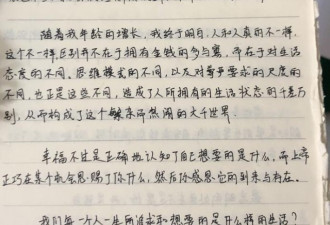 随着我年龄的增长，我终于明白，人和人真的不一样，
这个不一样，区别并不在于拥有金钱的多与寡，而在于对生活
态度的不同，思维模式的不同，以及对尊严要求的尺度的
不同，也正是这些不同，造成了人所拥有的生活状态的千差万
别，从而构成了这个繁杂浮然阔的大千世界。
幸福不过是正确地认知了自己想要的是什么，而上帝
正巧在某个机会恩赐了你什么，然后你感恩它的到来与存在。
我们每个人一生所追求和想要的是什么样的生活？